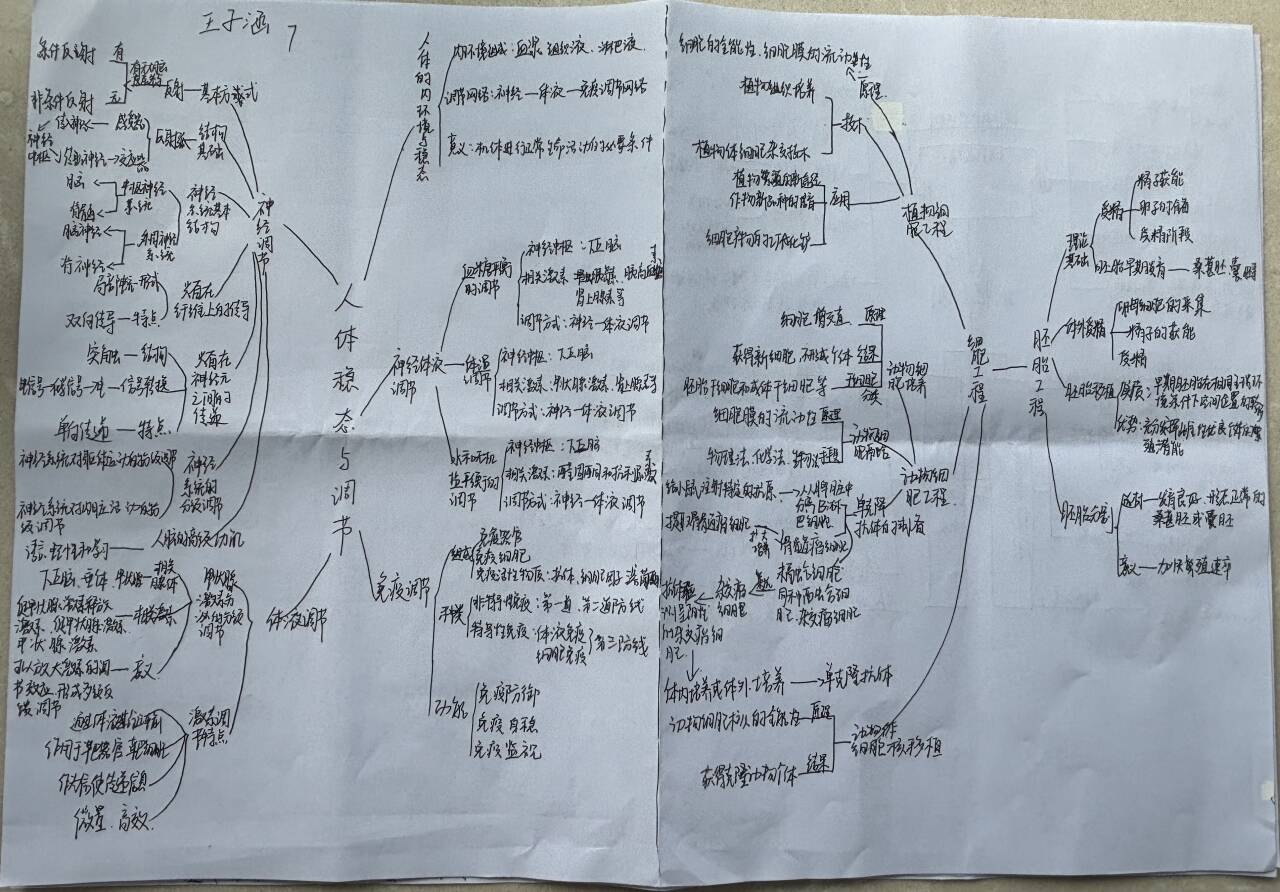 王子涵 7
条件反射 有
非条件反射 无
反射 基本方式
传入神经 感受器
神经中枢
传出神经 效应器
反射弧
结构基础
脑
脊髓
中枢神经系统
脑神经
脊神经
外周神经系统
神经系统基本结构
局部电流 形式
双向传导 特点
兴奋在纤维上的传导
突触 结构
信号转换
单向传递 特点
兴奋在神经元之间的传递
神经系统对躯体运动的分级调节
神经系统对内脏活动的分级调节
神经系统的分级调节
语言、 学习
人脑的高级功能
神经调节
下丘脑、垂体、甲状腺
相关腺体
促甲状腺激素释放激素、促甲状腺激素、甲状腺激素
相关激素
可以放大激素的调节效应,形成多级反馈调节
意义
甲状腺激素分泌的分级调节
通过体液进行运输
作用于靶器官、靶细胞
作为信使传递信息
微量、高效
激素调节特点
体液调节
人体稳态与调节
人体的内环境与稳态
内环境组成:血浆、组织液、淋巴液
调节网络:神经—体液—免疫调节网络
意义:机体进行正常生命活动的必要条件
神经体液调节
血糖平衡的调节
神经中枢:下丘脑
相关激素:
肾上腺素等
调节方式:神经—体液调节
体温调节
神经中枢:下丘脑
相关激素:甲状腺激素、肾上腺素等
调节方式:神经—体液调节
水和无机盐平衡的调节
神经中枢:下丘脑
相关激素:醛固酮和抗利尿激素
调节方式:神经—体液调节
免疫调节
组成
免疫器官
免疫细胞
免疫活性物质:抗体、细胞因子、溶菌酶
种类
非特异性免疫:第一道、第二道防线
特异性免疫:体液免疫
细胞免疫
第三防线
功能
免疫防御
免疫自稳
免疫监视
细胞的全能性、细胞膜的流动性
原理
植物组织培养
植物体细胞杂交技术
技术
植物繁殖的新途径
作物新品种的培育
细胞产物的工厂化生产
应用
植物细胞工程
细胞增殖 原理
获得新细胞,不形成个体 结果
胚胎干细胞和成体干细胞等
干细胞分类
动物细胞培养
细胞膜的流动性 原理
物理法、化学法、
动物细胞融合
动物细胞工程
给小鼠注射特定的抗原
从小鼠脾中分离B淋巴细胞
骨髓瘤细胞
单克隆抗体的制备
融合细胞
同种融合细胞、杂交瘤细胞
筛选
杂交瘤细胞
体内培养或体外培养→单克隆抗体
动物细胞核的全能性 原理
获得克隆动物个体 结果
动物体细胞核移植
细胞工程
胚胎工程
理论基础
受精
精子获能
卵子的准备
受精阶段
胚胎早期发育 — 桑葚胚、囊胚
体外受精
卵母细胞的采集
精子的获能
受精
胚胎移植
实质:早期胚胎在相同生理环境条件下空间位置的转移
优势:充分发挥雌性优良个体的繁殖潜能
胚胎分割
选材 — 发育良好、形态正常的桑葚胚或囊胚
意义 — 加快繁殖速率